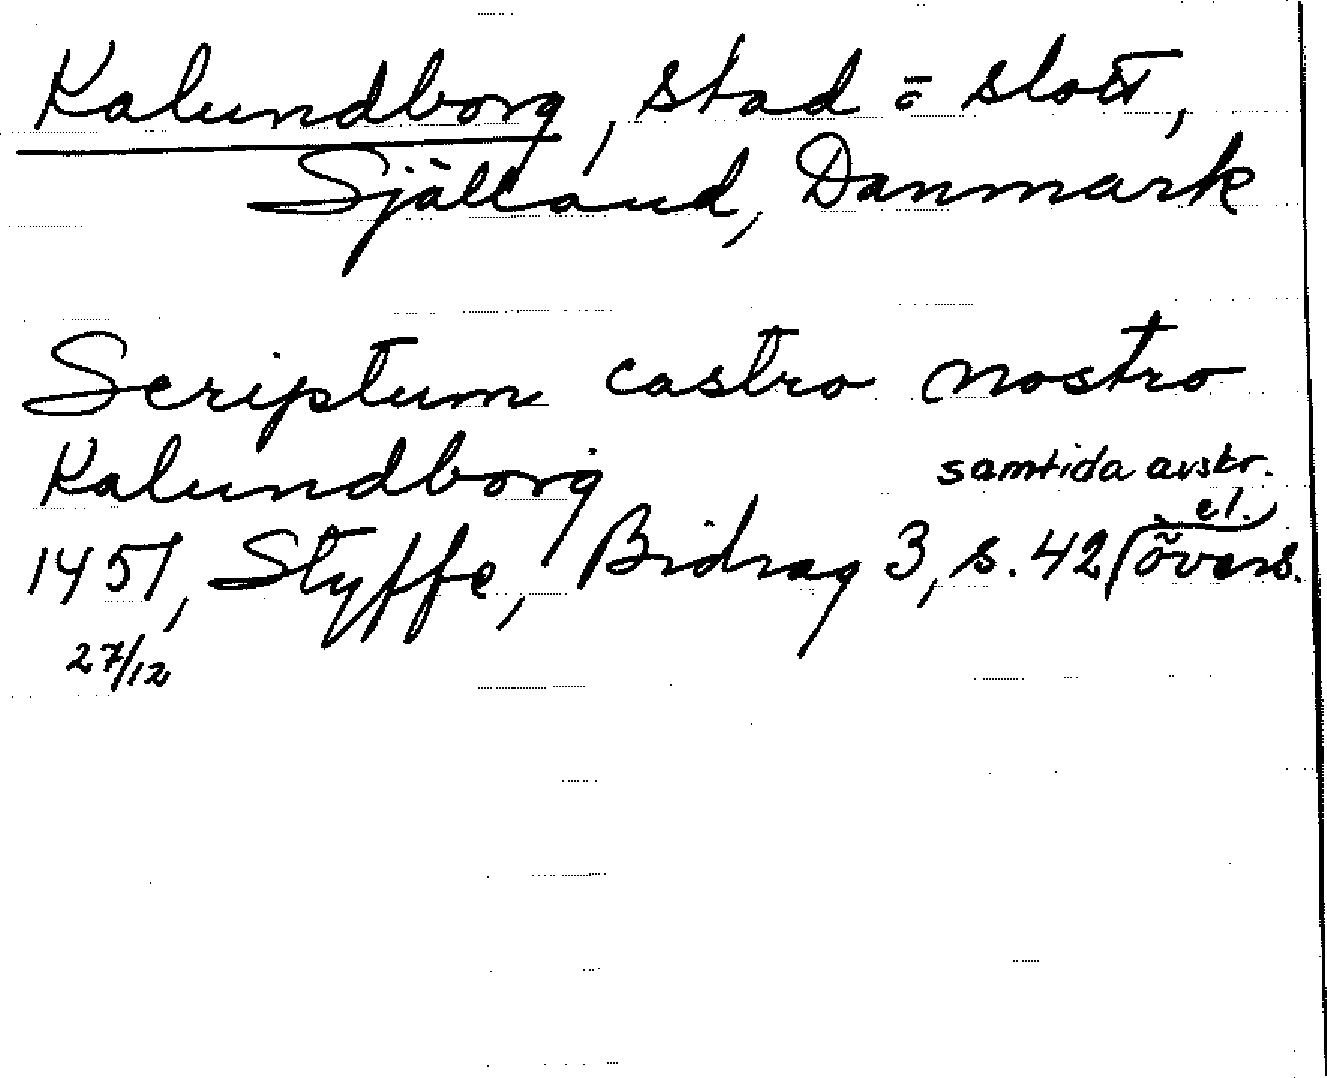 Kalundborg, stad o slott,
Själland, Danmark
Scriptum castro nostro
Kalundborg
samtida avskr.
el.
1457, Styffe, Bidrag 3, s. 42 (övers.
27/12